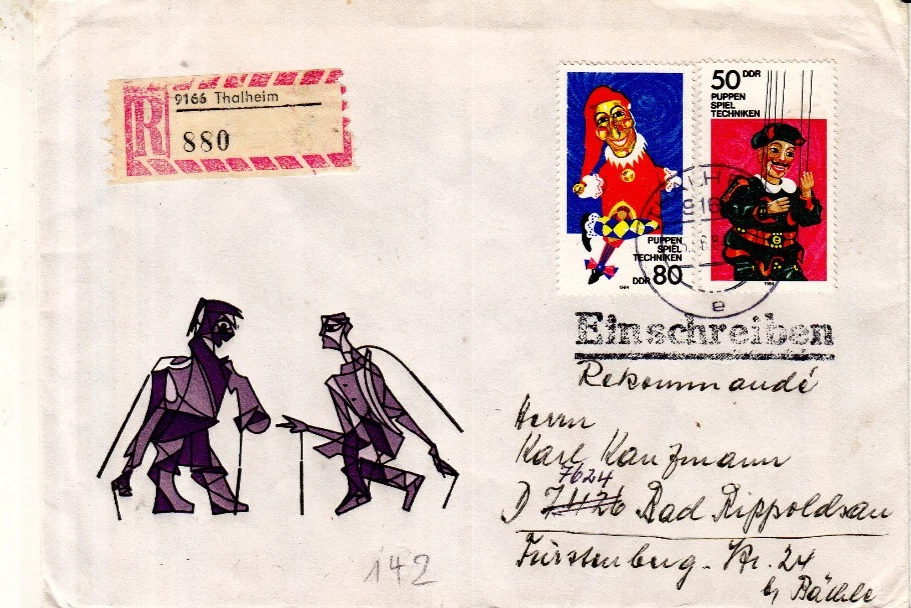 R
9166 Thalheim
880
PUPPEN
SPIEL
TECHNIKEN
DDR 80
1984
50 DDR
PUPPEN
SPIEL
TECHNIKEN
1984
e
Einschreiben
Rekommandé
Herrn
Karl Kaufmann
7624
D Bad Rippoldsau
Fürstenberg-Str. 24
b, Bächle
142